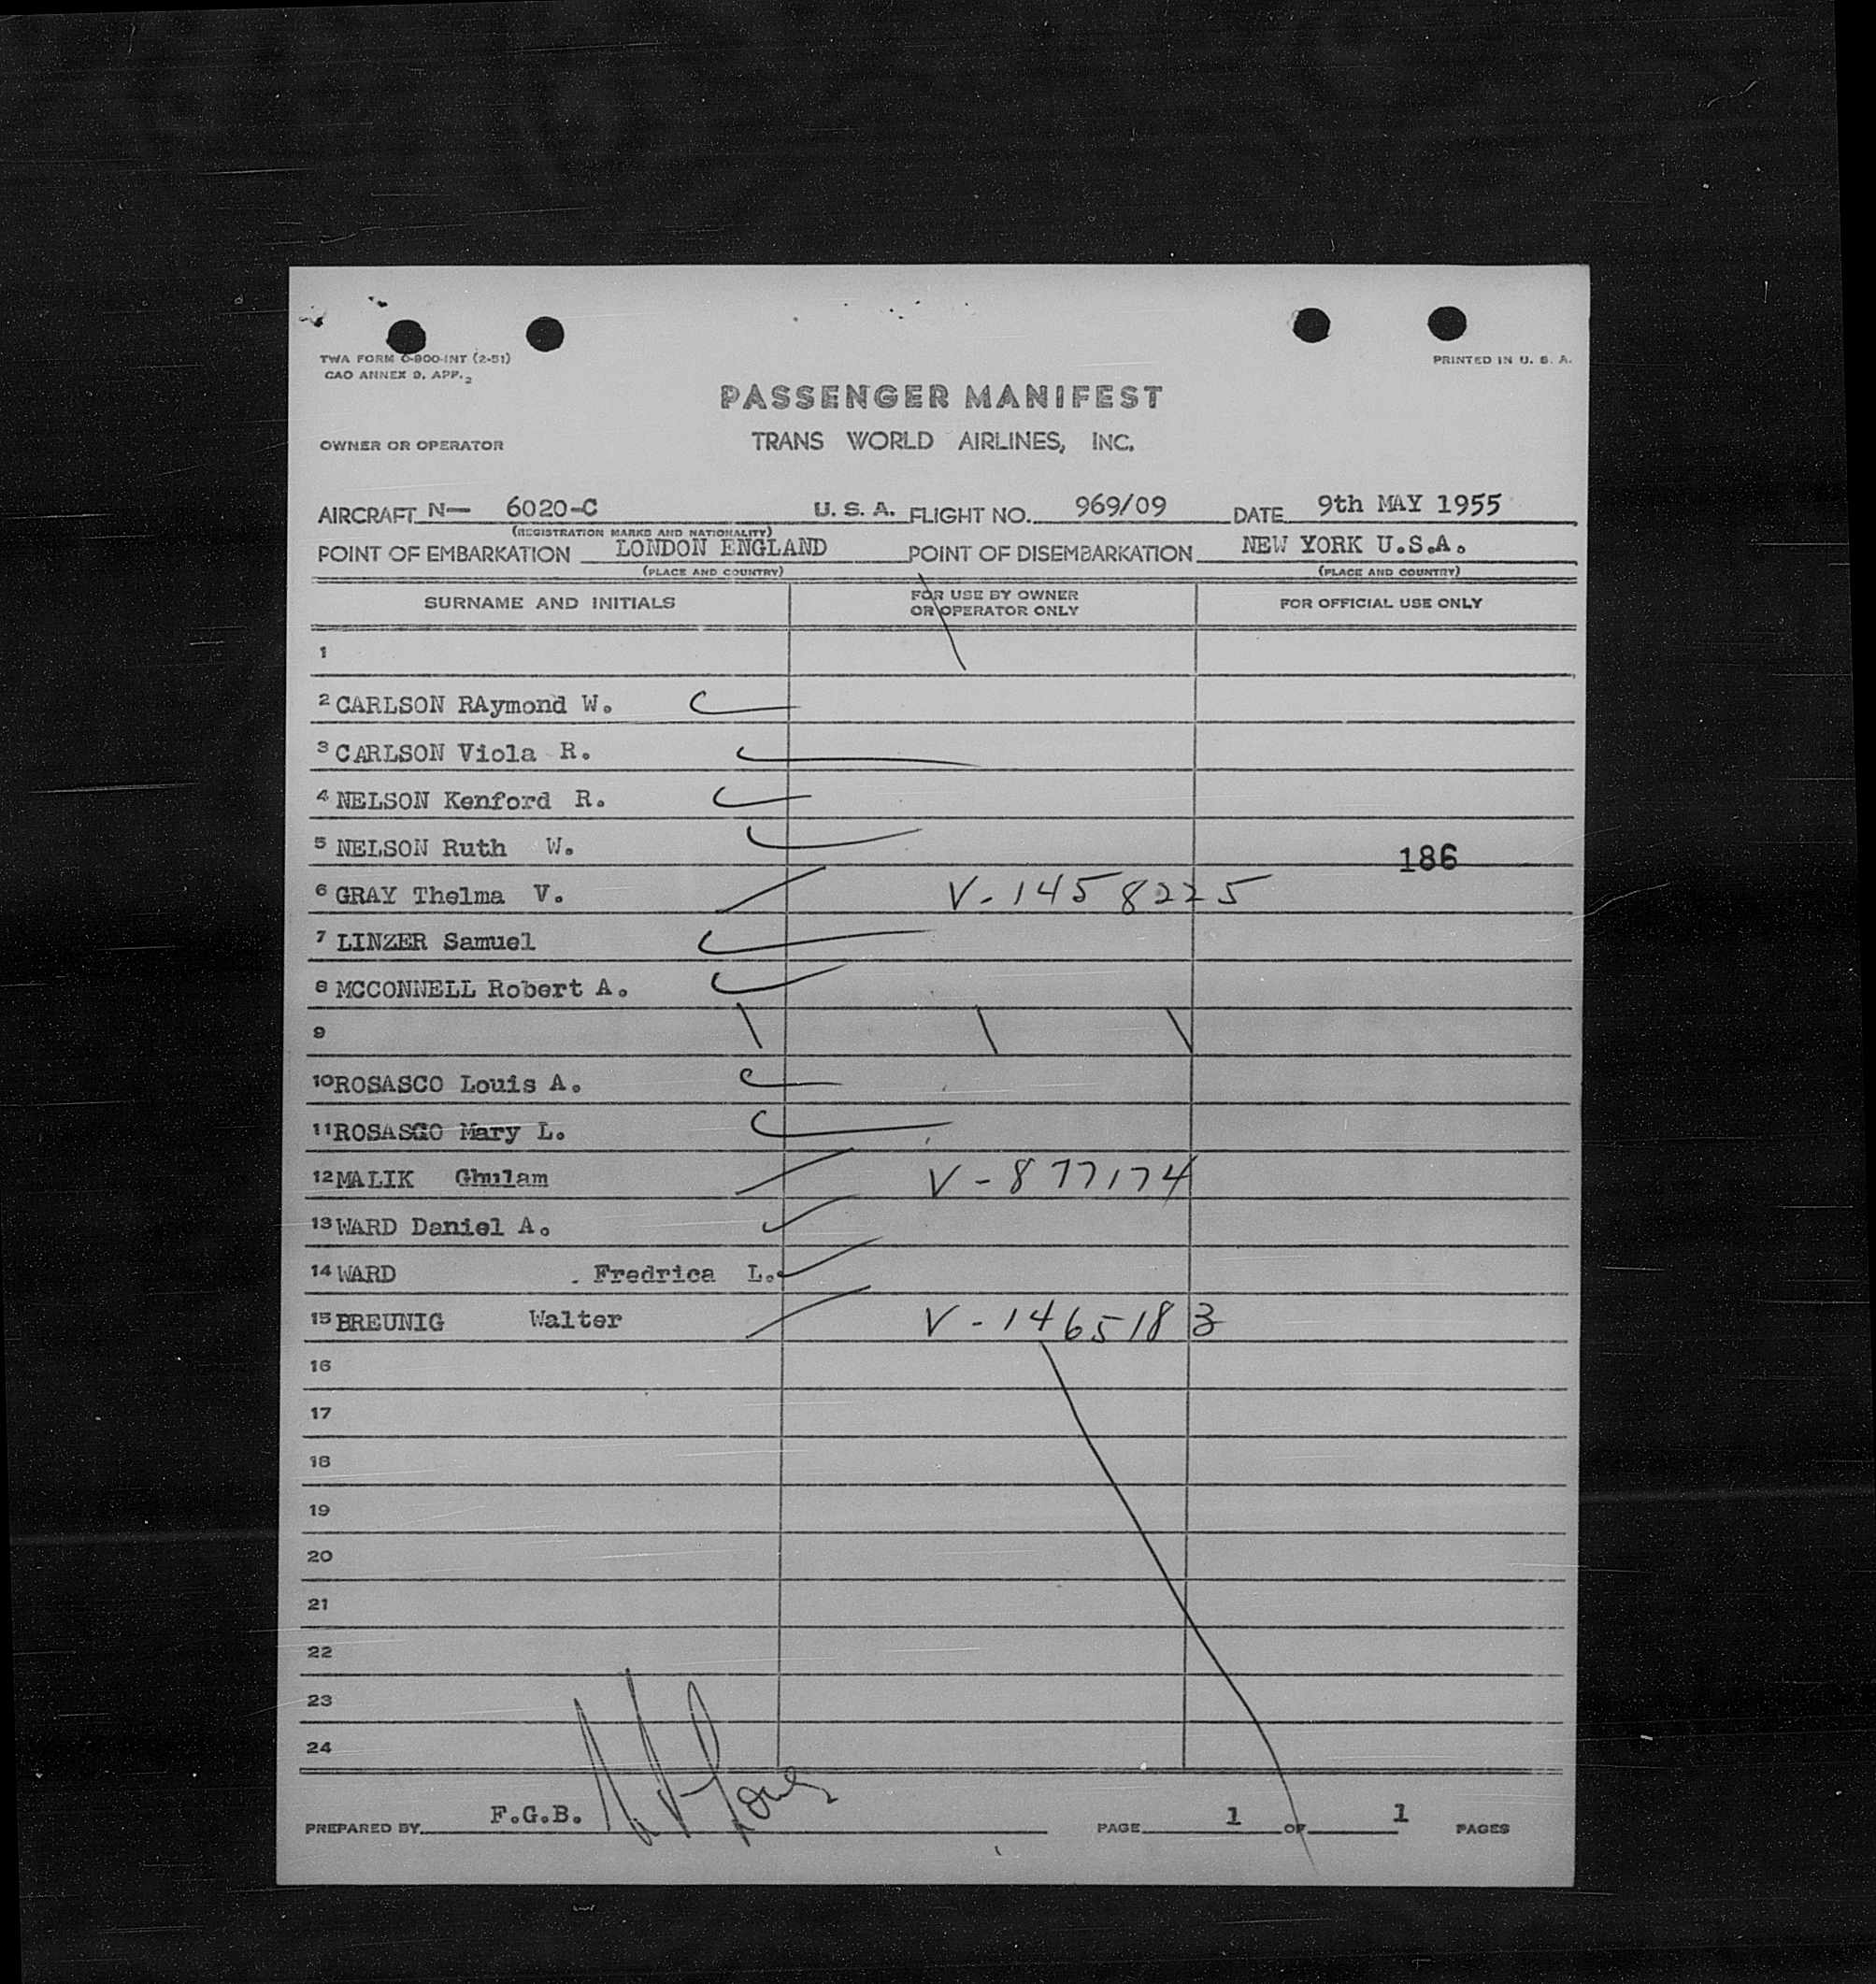 TWA FORM O-800-INT (2-51)
CAO ANNEX 9, APP. 2
PRINTED IN U. S. A.
PASSENGER MANIFEST
OWNER OR OPERATOR
TRANS WORLD AIRLINES, INC.
AIRCRAFT N— 6020-C U. S. A. FLIGHT NO. 969/09 DATE 9th MAY 1955
(REGISTRATION MARKS AND NATIONALITY)
POINT OF EMBARKATION LONDON ENGLAND POINT OF DISEMBARKATION NEW YORK U.S.A.
(PLACE AND COUNTRY) (PLACE AND COUNTRY)
SURNAME AND INITIALS FOR USE BY OWNER OR OPERATOR ONLY FOR OFFICIAL USE ONLY
1
2 CARLSON RAymond W.
3 CARLSON Viola R.
4 NELSON Kenford R.
5 NELSON Ruth W. 186
6 GRAY Thelma V. V-1458225
7 LINZER Samuel
8 MCCONNELL Robert A.
9
10 ROSASCO Louis A.
11 ROSASCO Mary L.
12 MALIK Ghulam V-877174
13 WARD Daniel A.
14 WARD . Fredrica L.
15 BREUNIG Walter V-1465183
16
17
18
19
20
21
22
23
24
PREPARED BY F.G.B. PAGE 1 OF 1 PAGES